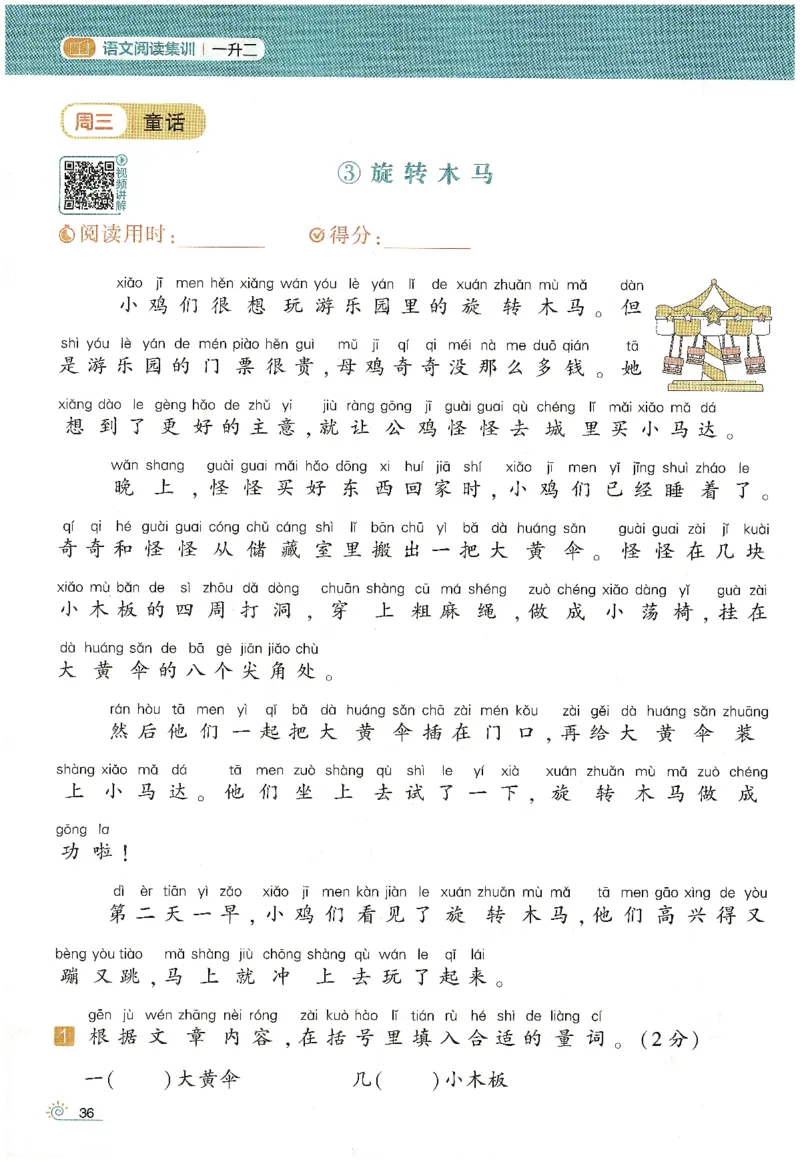 语文阅读集训 一升二
周三 童话
视频讲解
③ 旋转木马
阅读用时: 得分:
xiǎo jī men hěn xiǎng wán yóu lè yán lǐ de xuán zhuǎn mù mǎ dàn
小鸡们很想玩游乐园里的旋转木马。但
shì yóu lè yán de mén piào hěn guì mǔ jī qí qi méi nà me duō qián tā
是游乐园的门票很贵,母鸡奇奇没那么多钱。她
xiǎng dào le gèng hǎo de zhǔ yi jiù ràng gōng jī guài guai qù chéng lǐ mǎi xiǎo mǎ dá
想到了更好的主意,就让公鸡怪怪去城里买小马达。
wǎn shang guài guai mǎi hǎo dōng xi huí jiā shí xiǎo jī men yǐ jīng shuì zháo le
晚上,怪怪买好东西回家时,小鸡们已经睡着了。
qí qi hé guài guai cóng chǔ cáng shì lǐ bān chū yì bǎ dà huáng sǎn guài guai zài jǐ kuài
奇奇和怪怪从储藏室里搬出一把大黄伞。怪怪在几块
xiǎo mù bǎn de sì zhōu dǎ dòng chuān shàng cū má shéng zuò chéng xiǎo dàng yǐ guà zài
小木板的四周打洞,穿上粗麻绳,做成小荡椅,挂在
dà huáng sǎn de bā gè jiān jiǎo chù
大黄伞的八个尖角处。
rán hòu tā men yì qǐ bǎ dà huáng sǎn chā zài mén kǒu zài gěi dà huáng sǎn zhuāng
然后他们一起把大黄伞插在门口,再给大黄伞装
shàng xiǎo mǎ dá tā men zuò shàng qù shì le yí xià xuán zhuǎn mù mǎ zuò chéng
上小马达。他们坐上去试了一下,旋转木马做成
gōng la
功啦!
dì èr tiān yì zǎo xiǎo jī men kàn jiàn le xuán zhuǎn mù mǎ tā men gāo xìng de yòu
第二天一早,小鸡们看见了旋转木马,他们高兴得又
bèng yòu tiào mǎ shàng jiù chōng shàng qù wán le qǐ lái
蹦又跳,马上就冲上去玩了起来。
gēn jù wén zhāng nèi róng zài kuò hào lǐ tián rù hé shì de liàng cí
1 根据文章内容,在括号里填入合适的量词。(2分)
一( )大黄伞 几( )小木板
36